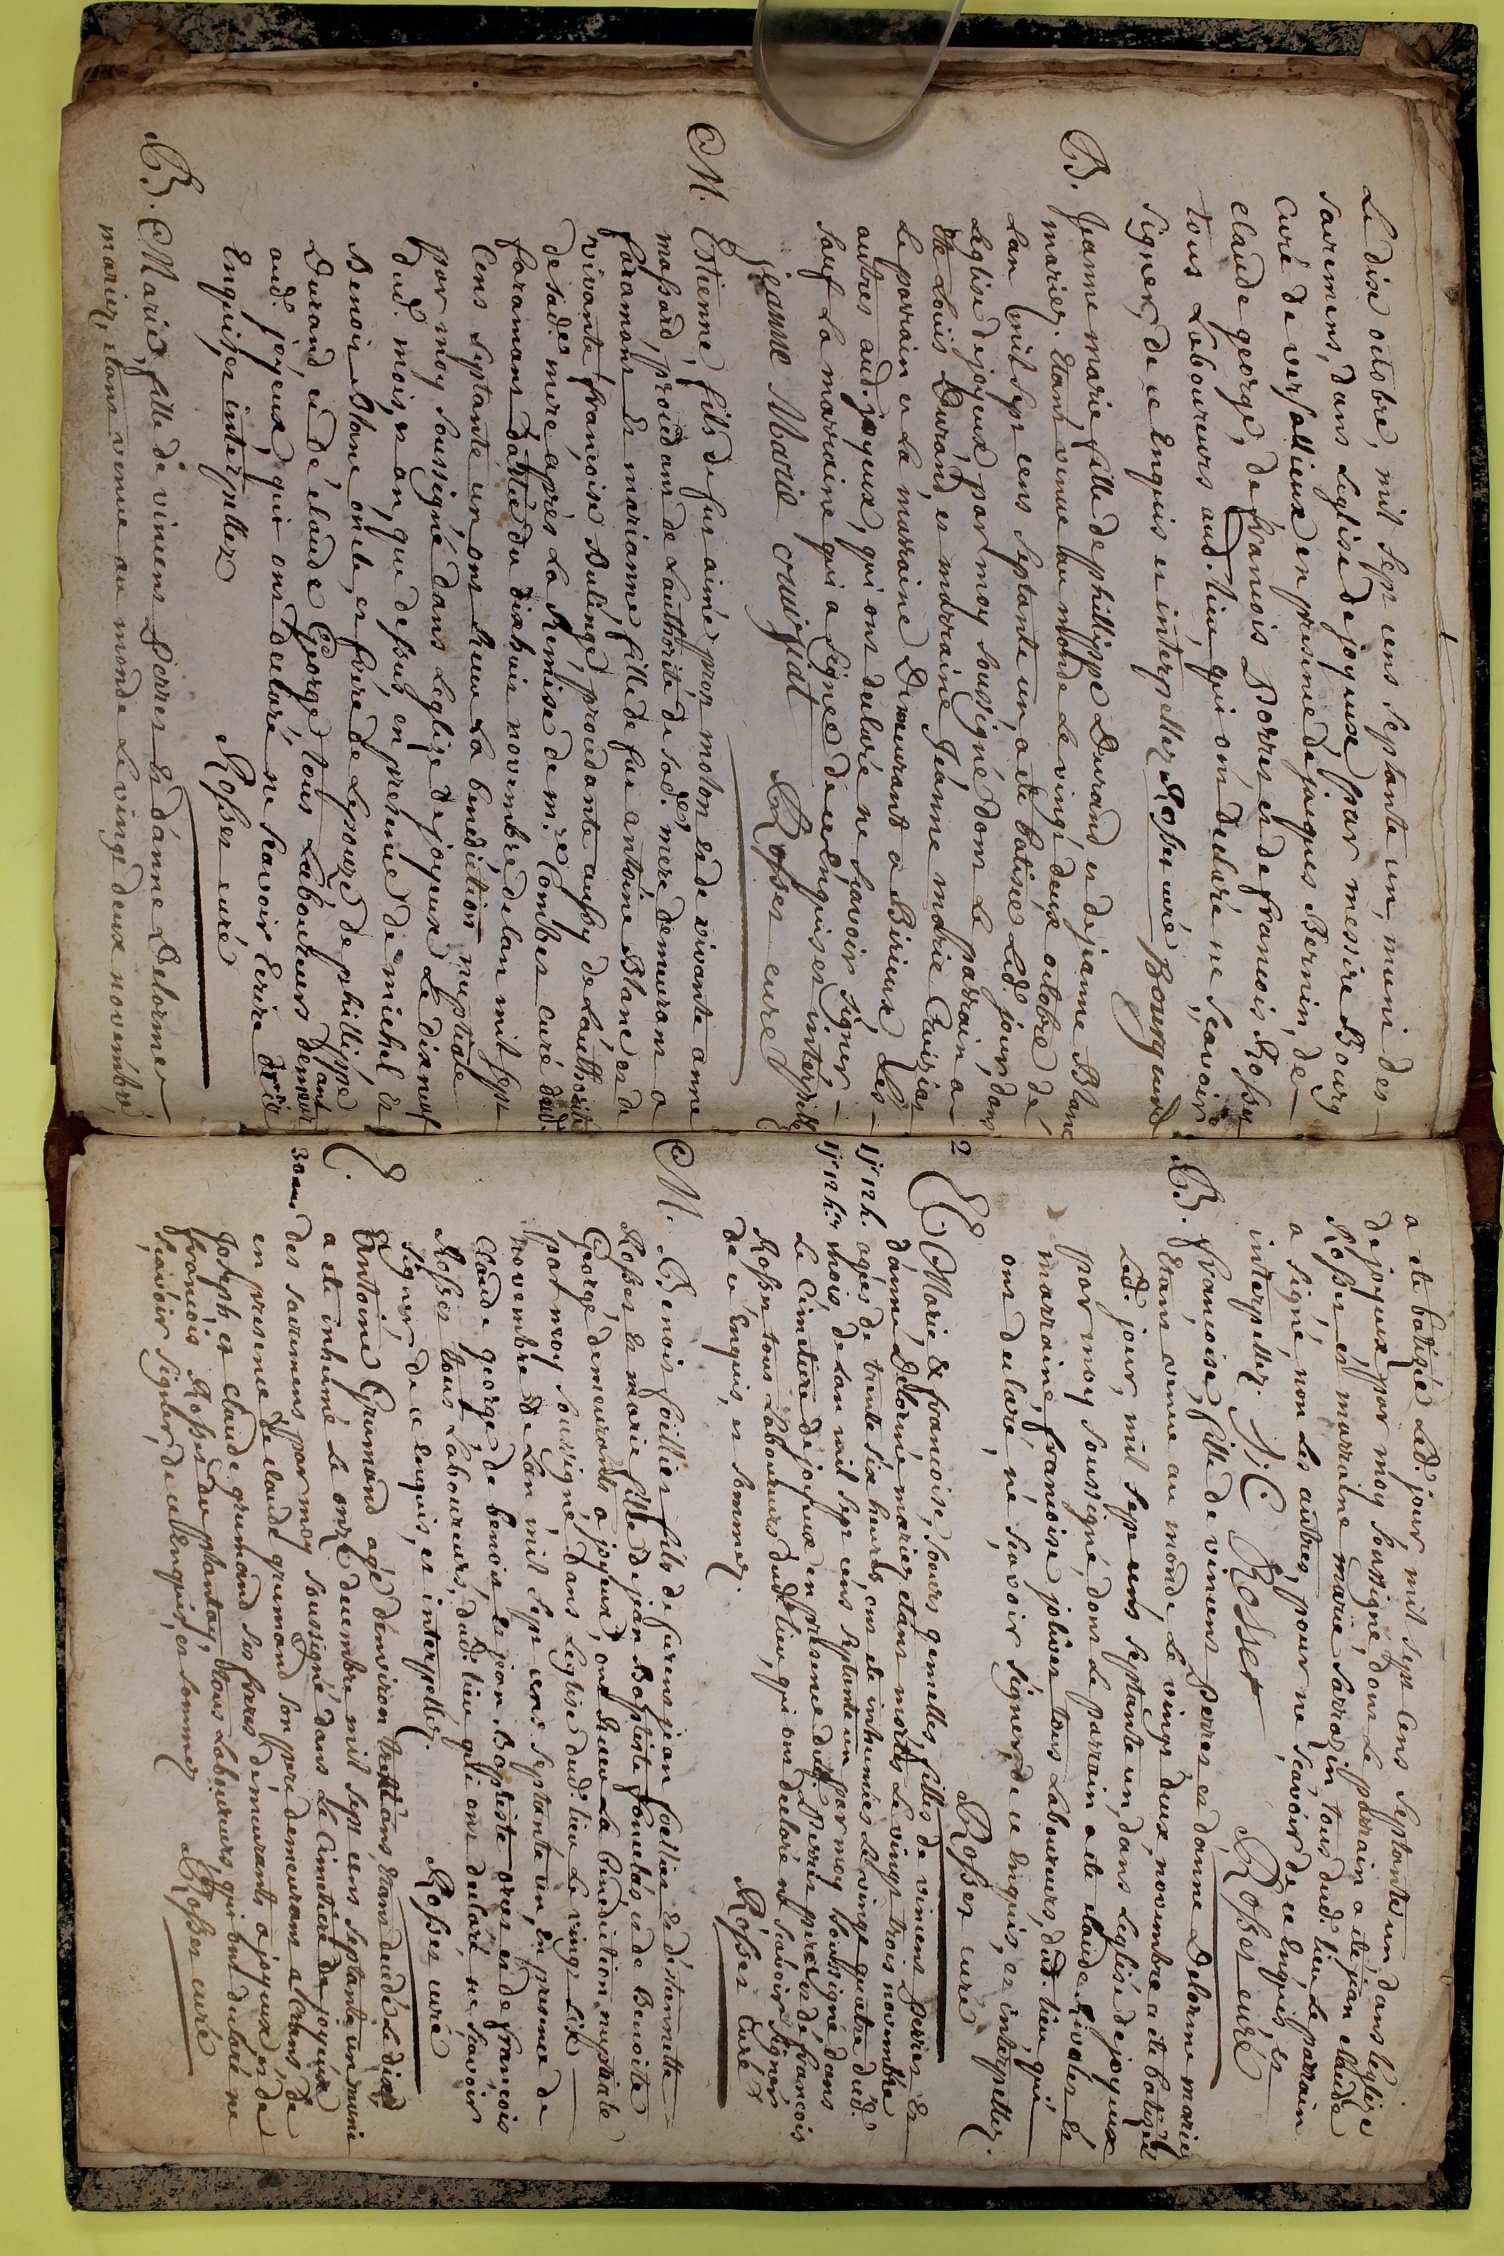 1
Le dix octobre, mil sept cens septante un, muni des
sacremens, dans leglise de joyeux par messire Bourg
curé de versallieux en presence de jacques Bernin, de
claude george, de francois Perret et de francois Rosset
tous Laboureurs aud. lieu qui ont declaré ne scavoir
signer, de ce Enquis et interpellez Rosset curé Bourg curé
B. Jeanne marie fille de phillippe Durand et de jeanne Blanc
mariez. Etant venue au monde Le vingt deux octobre de
Lan mil sept cens septante un, a eté batisée led. jour, dans
Leglise de joyeux par moy soussigné dont Le parrain a
eté Louis Durand, et marraine Jeanne marie Cruiziat
Le parrain et La marraine Demeurant a Birieux, Les
autres aud. joyeux, qui ont declaré ne scavoir signer,
sauf La marraine qui a signé de ce Enquises interpellez
jeanne Marie cruiziat Rosset curé
M. Estienne, fils de fut aimé pror molon et de vivante anne
massard, procedant de Lauthorité de sad. mere demeurant a
faramans Et marianne, fille de fut antoine Blanc et de
vivante francoise Bulinge, procedante aussy de Lauthorité
de sad. mere, après La Remise de mre Combet curé dud.
faramans dattée du dixhuit novembre de Lan mil sept
Cens septante un ont Recu La benediction nuptiale
par moy soussigné dans Leglize de joyeux Le dix neuf
dud. mois, et an, que dessus, en presence de michel et
Benoit Blanc oncle, et frere de Lepouze de phillippe
Durand, et de claude George tous Laboureurs demeur
aud. joyeux, qui ont declaré, ne scavoir Ecrire de ce
Enquises interpellez Rosset curé
B. Marie, fille de vincent Perret Et d'anne Delorme
mariez, etant venue au monde Le vingt deux novembre,
2
a eté batizée Led. jour, mil sept cens septante un, dans leglise
de joyeux par moy soussigné, dont Le parrain a eté jean claude
Rosset et marraine marie Sarrazin tous dud. lieu Le parrain
a signé, non les autres, pour ne scavoir de ce Enquis, et
interpellez. J. C. Rosset Rosset curé
B. francoise, fille de vincent Perret, et d'anne Delorme mariez
Etant venue au monde Le vingt deux novembre a eté batizée
Led. jour, mil sept cens septante un, dans Leglise de joyeux
par moy soussigné dont Le parrain a eté claude Rivolet Et
marraine, francoise jolivet tous Laboureurs, dud. lieu, qui
ont declaré, ne scavoir signer, de ce Enquis, et interpellez.
Rosset curé
E Marie & francoise, soeurs gemelles, filles de vincent Perret Et
danne Delorme mariez etant mortes Le vingt trois novembre
agées de trente six heures, ont eté inhumées Le vingt quatre dud.
mois, de Lan mil sept cens septante un par moy soussigné dans
Le Cimetiere de joyeux en presence dud. Perret pere et de francois
Rosset tous Laboureurs dud. lieu, qui ont declaré ne scavoir signer
de ce Enquis, et sommez. Rosset Curé
M. Benoit foillier fils de furent jean foillier et d'estiennette
Rosset Et marie fille de jean Baptiste fontelas et de Benoite
George, demeurants a joyeux, ont Recu La benediction nuptiale
par moy soussigné dans Leglise dud. lieu, Le vingt six
novembre de Lan mil sept cens septante un, En presence de
claude george, de benoit et jean Baptiste et de francois
Rosset tous Laboureurs, dud. lieu qui ont declaré ne scavoir
signer, de ce Enquis, et interpellez. Rosset curé
E. Antoine Grumand agé denviron trente ans, Etant decedé Le dix
a eté inhumé Le onze decembre mil sept cens septante un muni
30 ans des sacremens, par moy soussigné dans Le Cimetiere de joyeux
en presence de claude grumand son pere demeurant a Crans, de
Joseph et claude grumand ses freres demeurants a joyeux et de
francois Rosset du plantay, tous Laboureurs, qui ont declaré ne
scavoir signer, de ce Enquis, et sommez Rosset curé